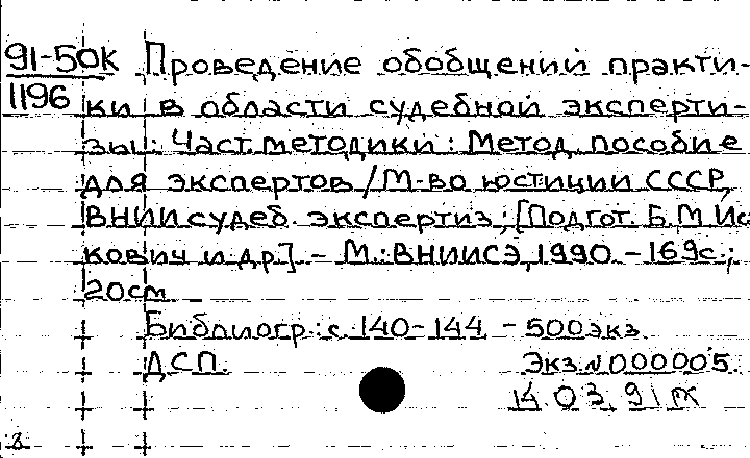 91-50К Проведение обобщений практи-
1196 ки в области судебной эксперти-
зы: Част. методики: Метод. пособие
для экспертов / М-во юстиции СССР,
ВНИИ судеб. экспертиз; [Подгот. Б.М. Ис
кович и др.] - М.: ВНИИСЭ, 1990. - 169с.;
20см
Библиогр.: с. 140-144 - 500экз.
ДСП. Экз. N 000005
14.03.91